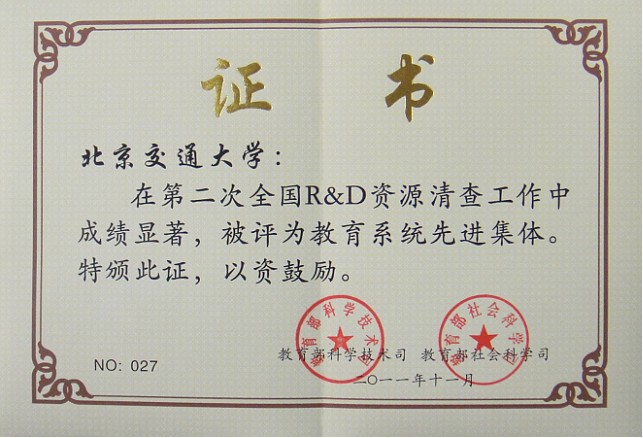 证 书
北京交通大学：
在第二次全国R&D资源清查工作中
成绩显著，被评为教育系统先进集体。
特颁此证，以资鼓励。
教育部科学技术司
教育部社会科学司
NO: 027
教育部科学技术司 教育部社会科学司
二〇一一年十一月